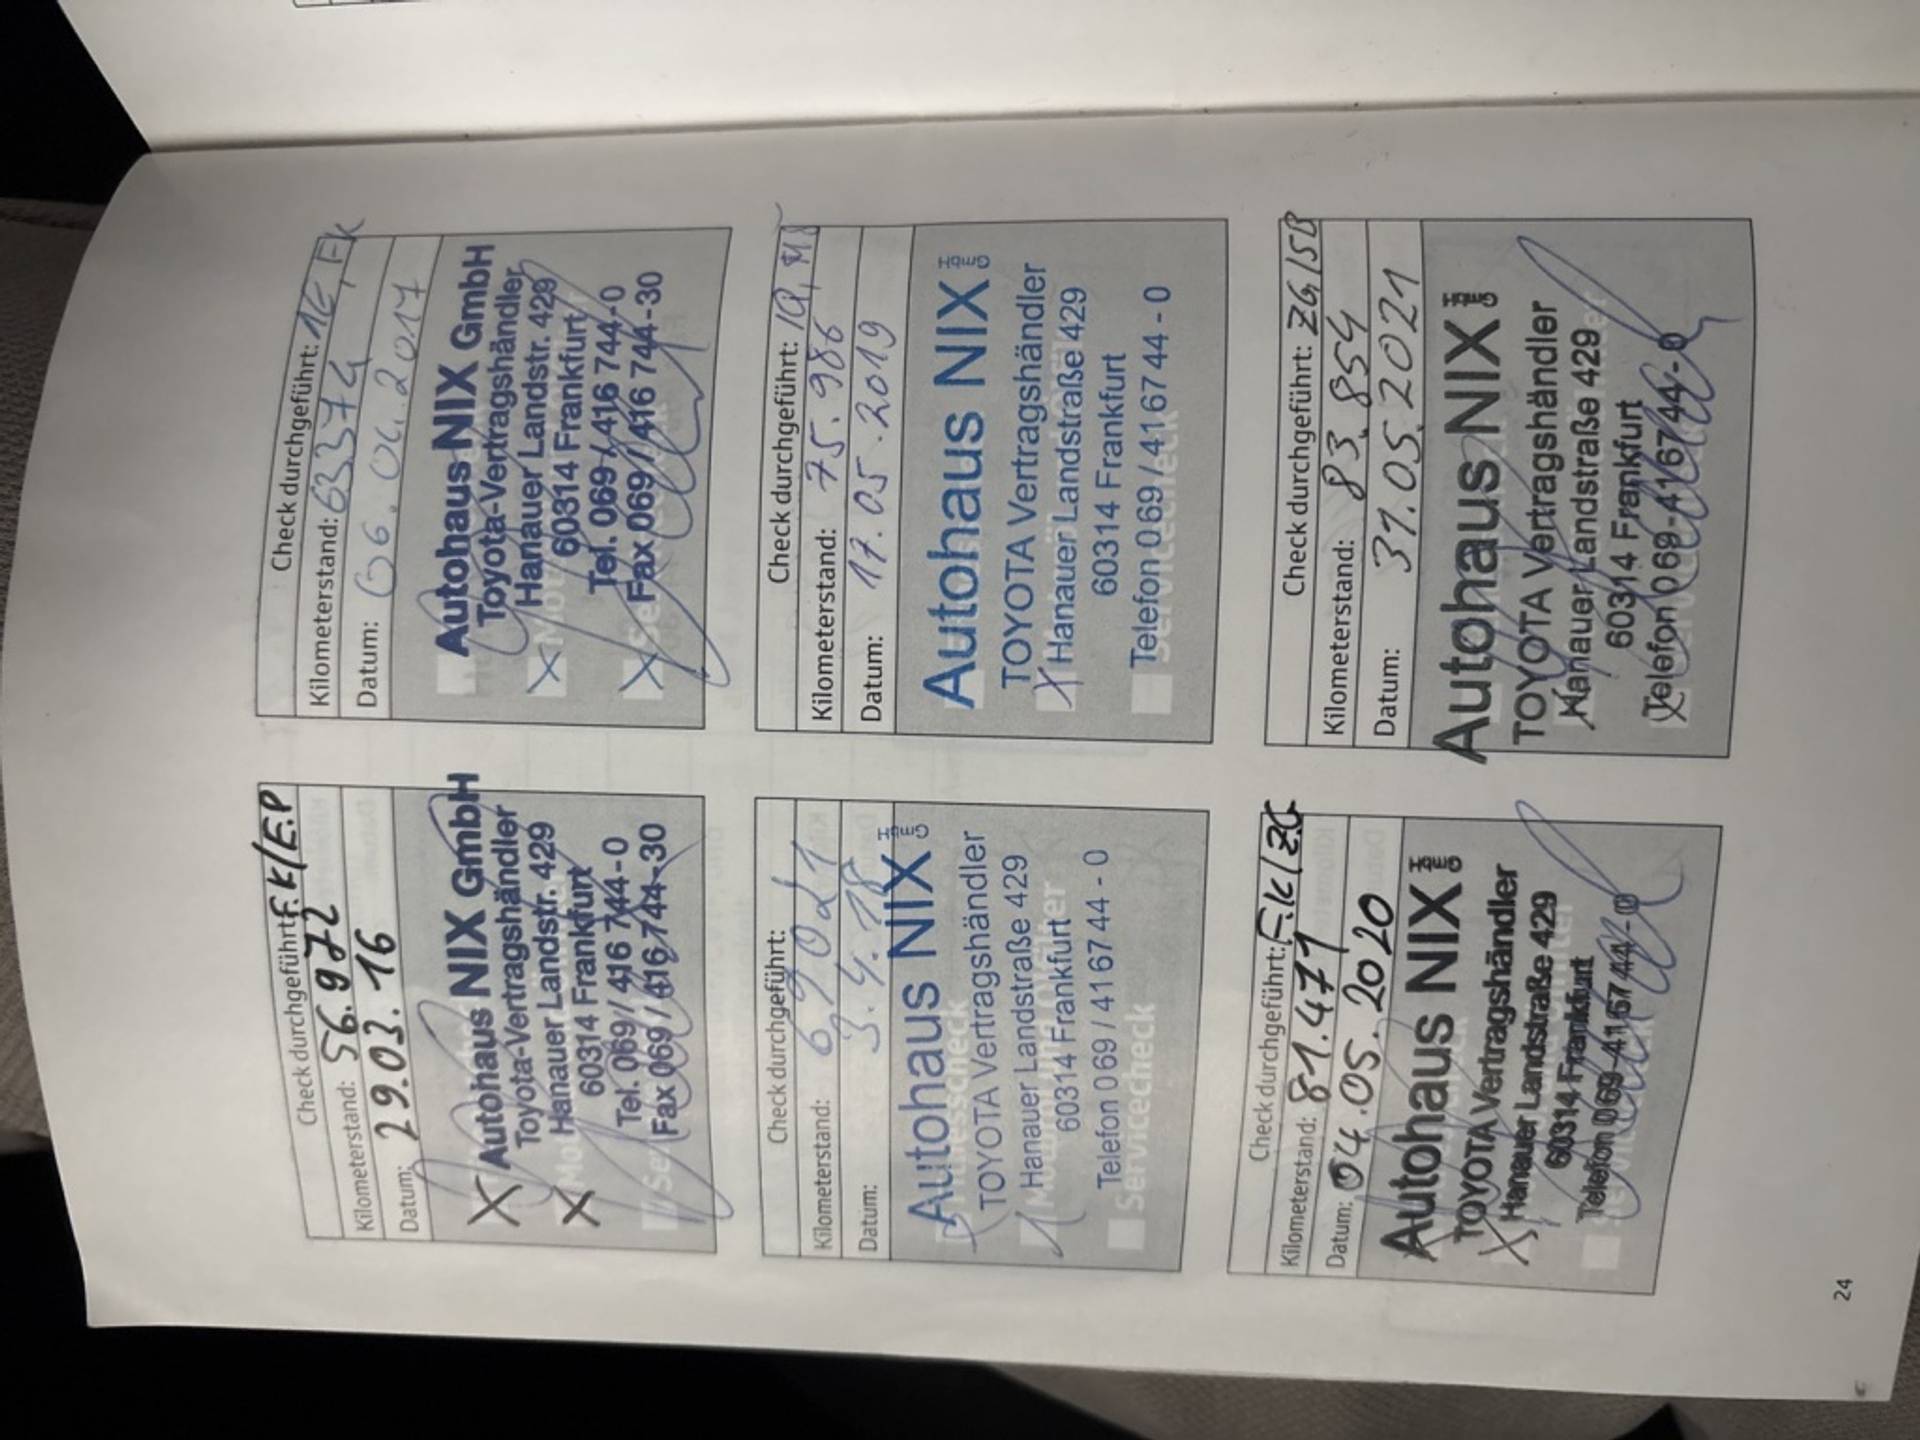 Check durchgeführt: F.K/E.P
Kilometerstand: 56.972
Datum: 29.03.16
X
Autohaus NIX GmbH
Toyota-Vertragshändler
X
Hanauer Landstr. 429
60314 Frankfurt
Tel. 069/416 744-0
Fax 069/416 744-30
Check durchgeführt: 1E, FK
Kilometerstand: 63374
Datum: 06.04.2017
Autohaus NIX GmbH
Toyota-Vertragshändler
X
Hanauer Landstr. 429
60314 Frankfurt
Tel. 069/416 744-0
X
Fax 069/416 744-30
Check durchgeführt:
Kilometerstand:
Datum: 3.4.18
Autohaus NIX GMBH
TOYOTA Vertragshändler
Hanauer Landstraße 429
60314 Frankfurt
Telefon 069/416744-0
Servicecheck
Check durchgeführt:
Kilometerstand: 75.986
Datum: 17.05.2019
Autohaus NIX GMBH
TOYOTA Vertragshändler
X Hanauer Landstraße 429
60314 Frankfurt
Telefon 069/416744-0
Servicecheck
Check durchgeführt: F.K/ZG
Kilometerstand: 81.471
Datum: 04.05.2020
Autohaus NIX GMBH
TOYOTA Vertragshändler
X Hanauer Landstraße 429
60314 Frankfurt
Telefon 069-416744-0
Check durchgeführt: ZG/SB
Kilometerstand: 83.854
Datum: 31.05.2021
Autohaus NIX GMBH
TOYOTA Vertragshändler
X Hanauer Landstraße 429
60314 Frankfurt
X Telefon 069-416744-0
24